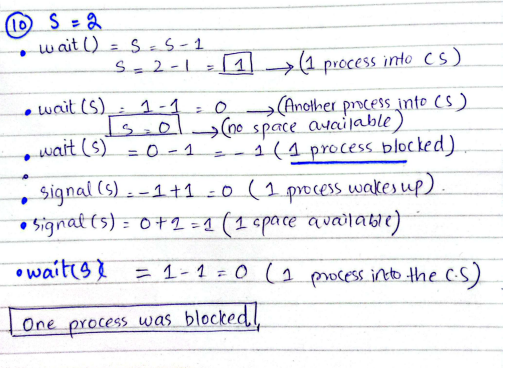 10 S = 2
• wait() = S = S - 1
S = 2 - 1 = 1 → (1 process into CS)
• wait(S) = 1 - 1 = 0 → (Another process into CS)
S = 0 → (no space available)
• wait(S) = 0 - 1 = - 1 (1 process blocked).
• signal(S) = -1 + 1 = 0 (1 process wakes up).
• signal(S) = 0 + 1 = 1 (1 space available)
• wait(S) = 1 - 1 = 0 (1 process into the C.S)
One process was blocked.